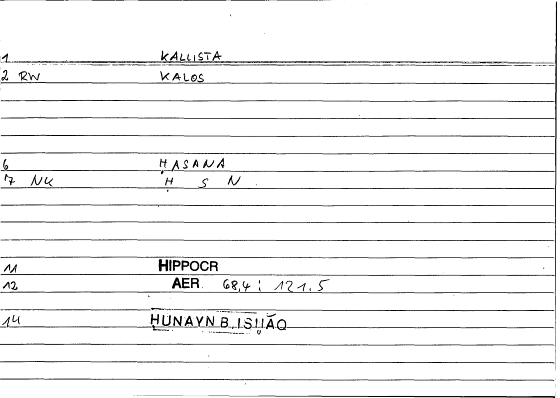 1 KALLISTA
2 RW KALOS
6 ḤASANA
7 NK Ḥ S N
11 HIPPOCR
12 AER. 68,4 : 121.5
14 ḤUNAYN B. ISḤĀQ